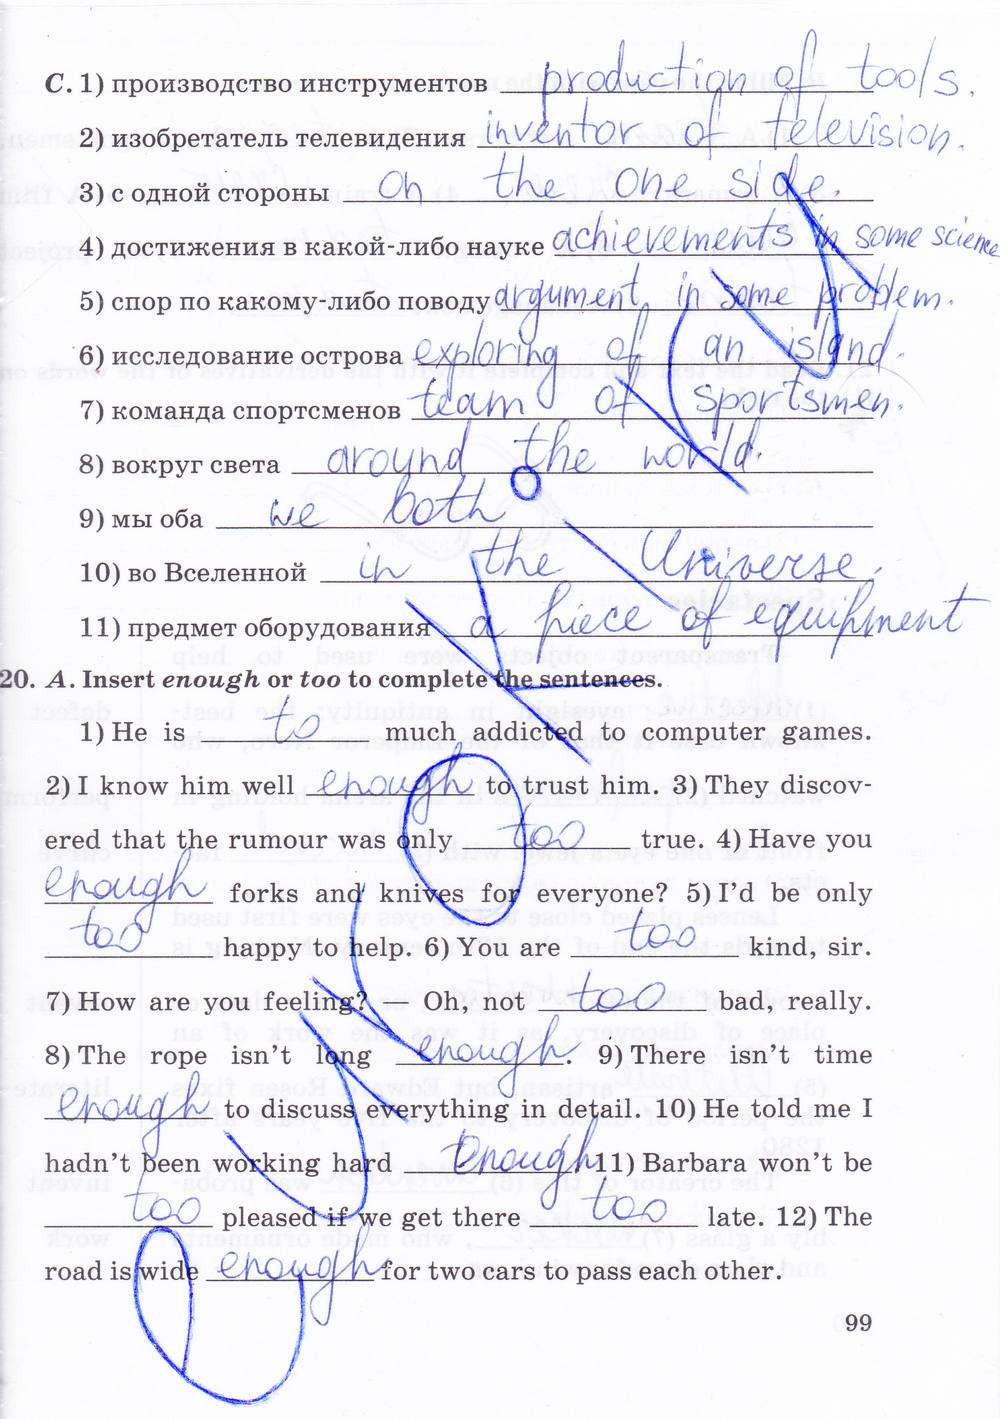 C. 1) производство инструментов production of tools.
2) изобретатель телевидения inventor of television.
3) с одной стороны on the one side.
4) достижения в какой-либо науке achievements in some science
5) спор по какому-либо поводу argument in some problem.
6) исследование острова exploring of an island.
7) команда спортсменов team of sportsmen.
8) вокруг света around the world.
9) мы оба we both
10) во Вселенной in the Universe.
11) предмет оборудования a piece of equipment
20. A. Insert enough or too to complete the sentences.
1) He is to much addicted to computer games.
2) I know him well enough to trust him. 3) They discov-
ered that the rumour was only too true. 4) Have you
enough forks and knives for everyone? 5) I'd be only
too happy to help. 6) You are too kind, sir.
7) How are you feeling? – Oh, not too bad, really.
8) The rope isn't long enough. 9) There isn't time
enough to discuss everything in detail. 10) He told me I
hadn't been working hard enough 11) Barbara won't be
too pleased if we get there too late. 12) The
road is wide enough for two cars to pass each other.
99